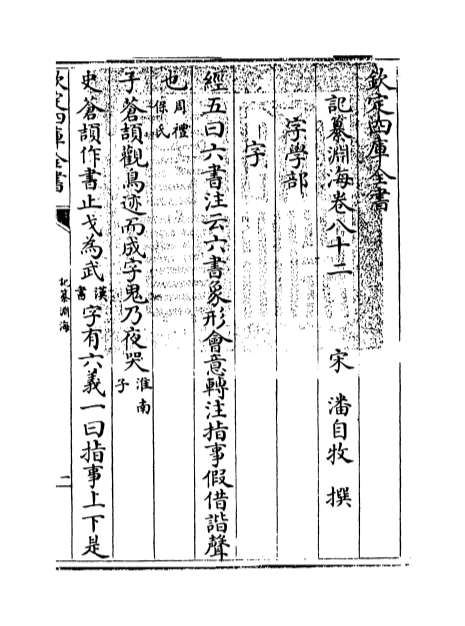 欽定四庫全書
記纂淵海卷八十二　宋　潘自牧　撰
字學部
字
經五曰六書注云六書象形會意轉注指事假借諧聲
也周禮保氏
子蒼頡觀鳥迹而成字鬼乃夜哭淮南子
史蒼頡作書止戈為武漢書字有六義一曰指事上下是
欽定四庫全書
記纂淵海
二